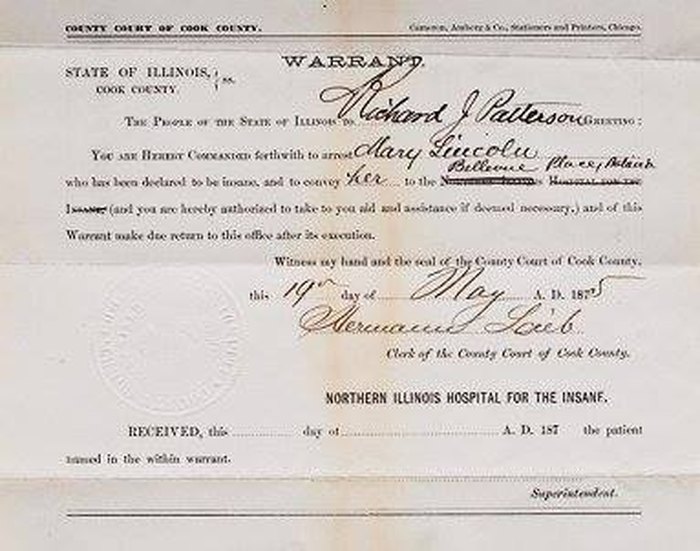 COUNTY COURT OF COOK COUNTY. Cameron, Amberg & Co., Stationers and Printers, Chicago.
WARRANT.
STATE OF ILLINOIS, } ss.
COOK COUNTY.
THE PEOPLE OF THE STATE OF ILLINOIS TO Richard J Patterson GREETING:
YOU ARE HEREBY COMMANDED forthwith to arrest Mary Lincoln
Bellevue Place, Batavia
who has been declared to be insane, and to convey her to the NORTHERN ILLINOIS HOSPITAL FOR THE
INSANE (and you are hereby authorized to take to you aid and assistance if deemed necessary,) and of this
Warrant make due return to this office after its execution.
Witness my hand and the seal of the County Court of Cook County,
this 19th day of May A. D. 1875
Hermann Lieb
Clerk of the County Court of Cook County.
NORTHERN ILLINOIS HOSPITAL FOR THE INSANE.
RECEIVED, this day of A. D. 187 the patient
named in the within warrant.
Superintendent.